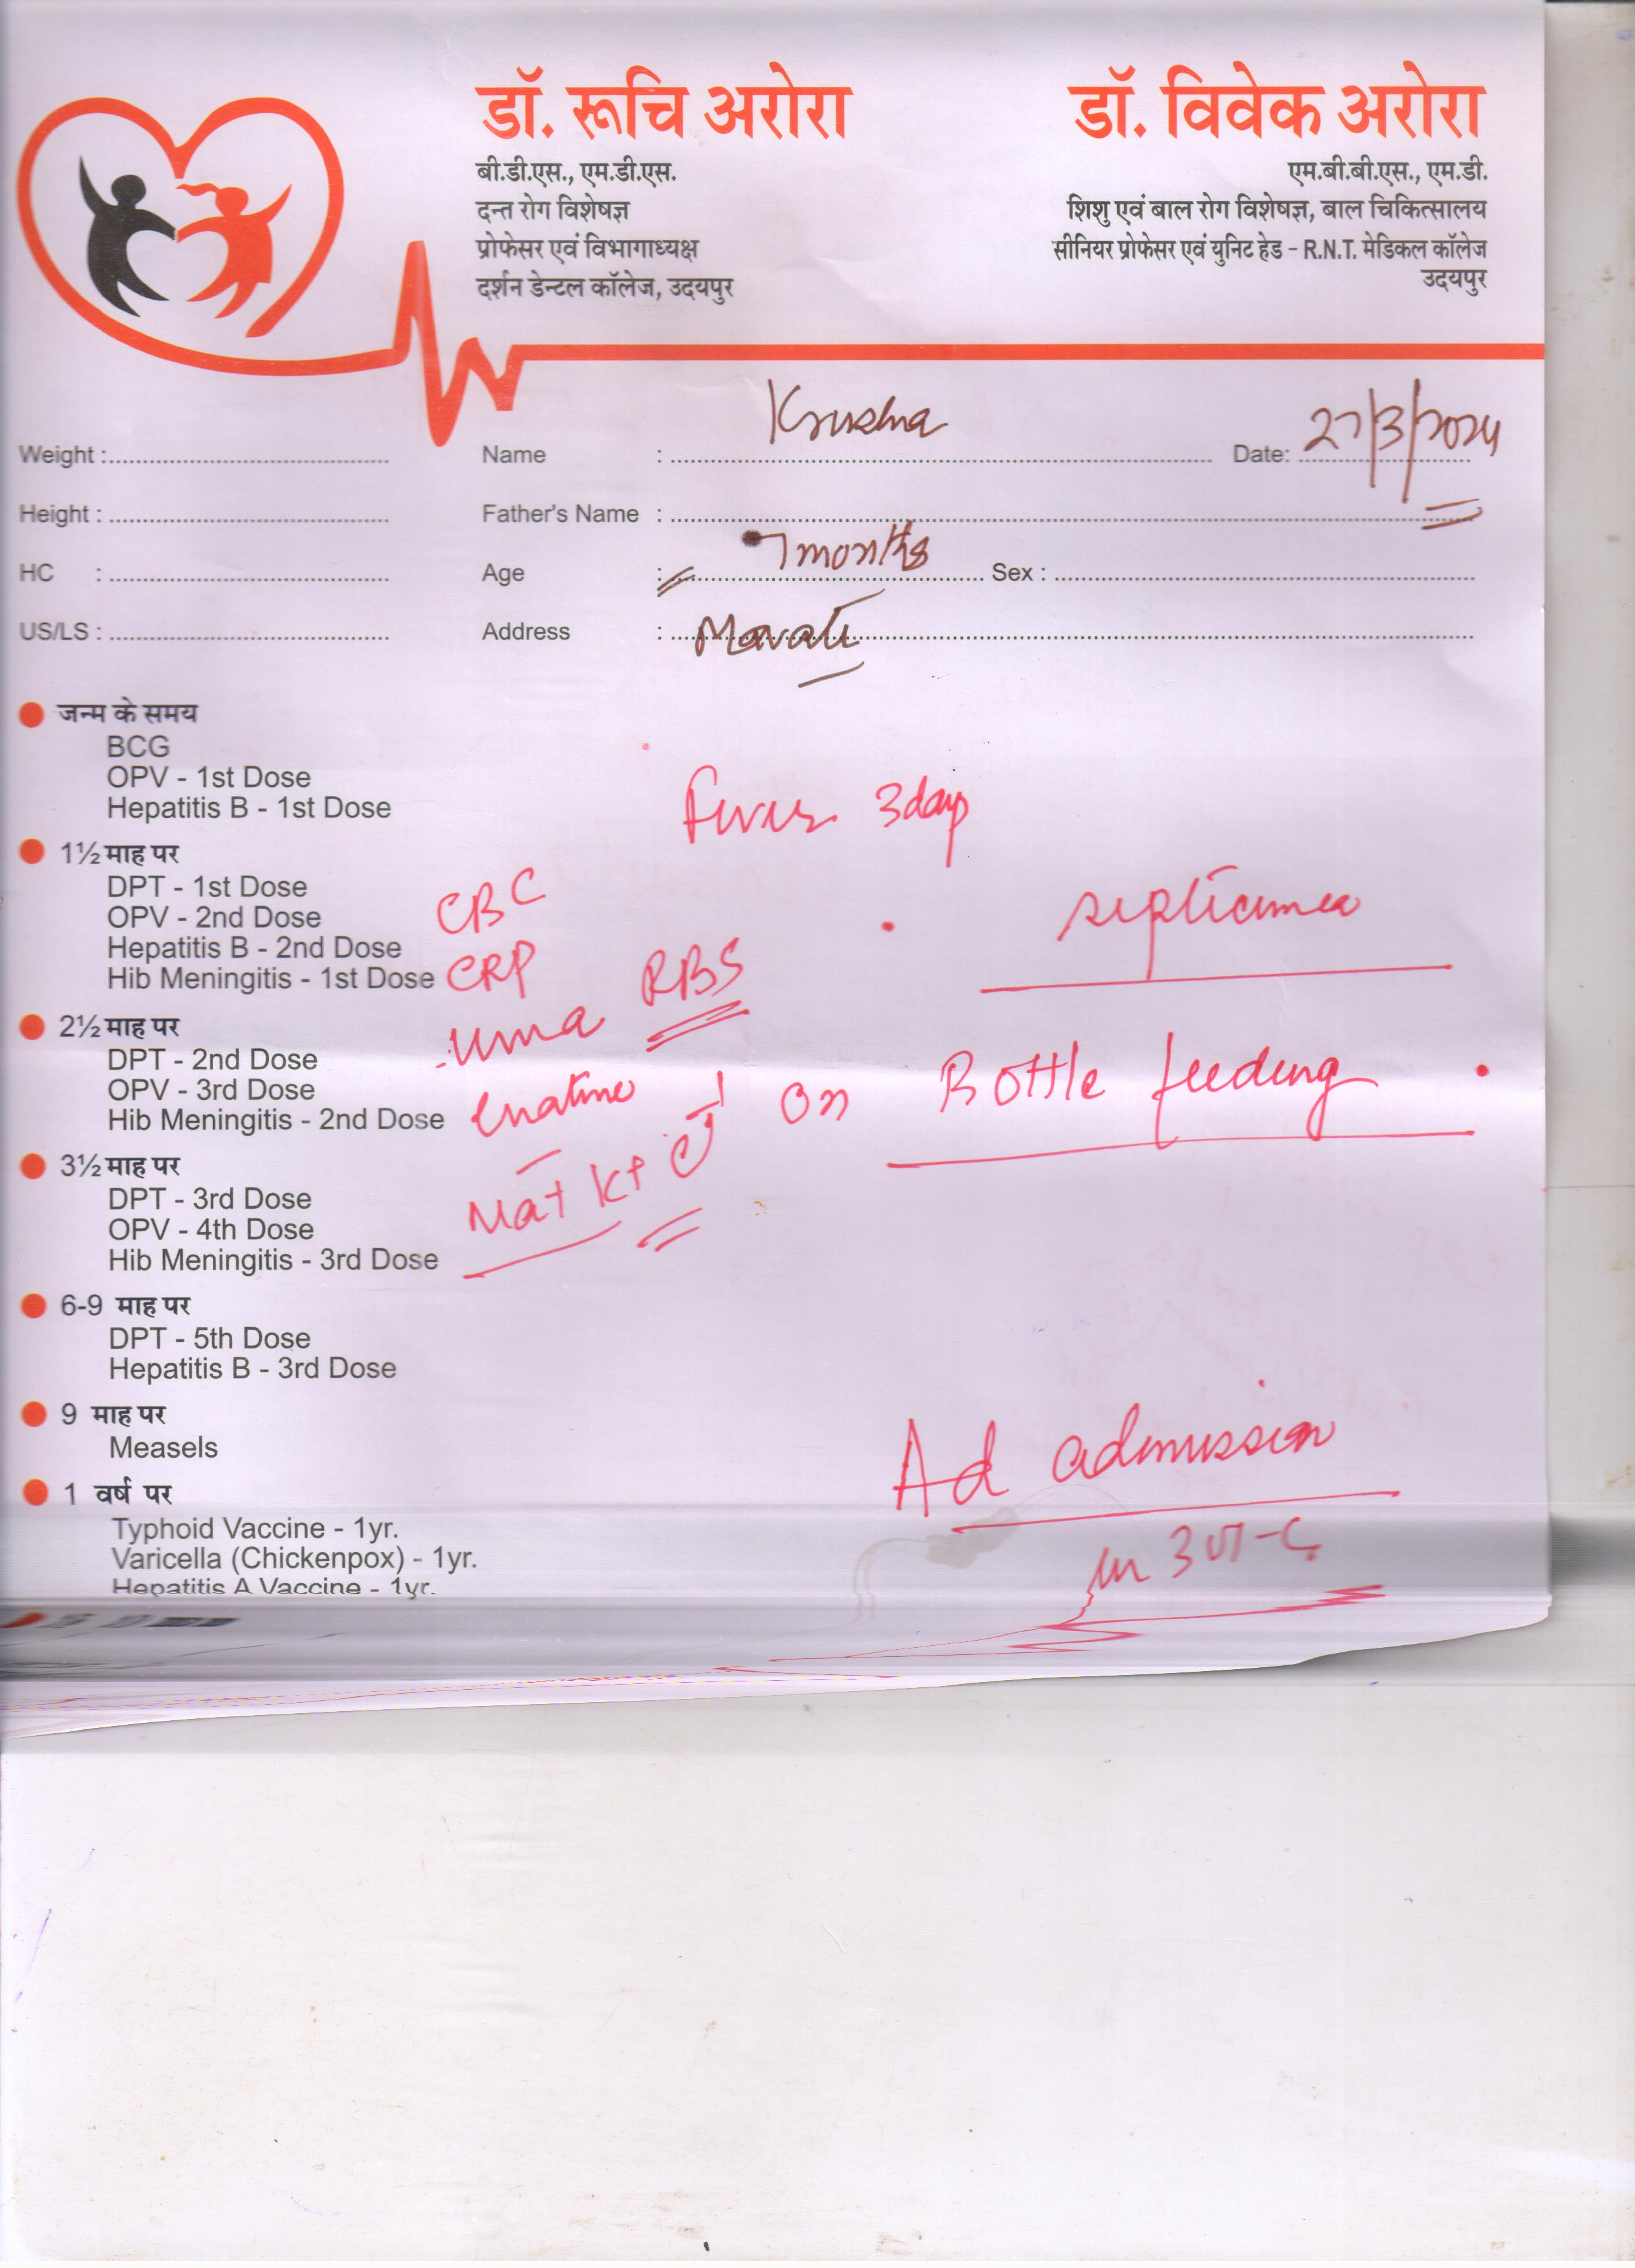 डॉ. रूचि अरोरा
बी.डी.एस., एम.डी.एस.
दन्त रोग विशेषज्ञ
प्रोफेसर एवं विभागाध्यक्ष
दर्शन डेन्टल कॉलेज, उदयपुर
डॉ. विवेक अरोरा
एम.बी.बी.एस., एम.डी.
शिशु एवं बाल रोग विशेषज्ञ, बाल चिकित्सालय
सीनियर प्रोफेसर एवं युनिट हेड - R.N.T. मेडिकल कॉलेज
उदयपुर
Weight : Name : Krushna Date: 27/3/2024
Height : Father's Name :
HC : Age : 7 months Sex :
US/LS : Address : Mavali
जन्म के समय
BCG
OPV - 1st Dose
Hepatitis B - 1st Dose
1½ माह पर
DPT - 1st Dose
OPV - 2nd Dose
Hepatitis B - 2nd Dose
Hib Meningitis - 1st Dose
2½ माह पर
DPT - 2nd Dose
OPV - 3rd Dose
Hib Meningitis - 2nd Dose
3½ माह पर
DPT - 3rd Dose
OPV - 4th Dose
Hib Meningitis - 3rd Dose
6-9 माह पर
DPT - 5th Dose
Hepatitis B - 3rd Dose
9 माह पर
Measels
1 वर्ष पर
Typhoid Vaccine - 1yr.
Varicella (Chickenpox) - 1yr.
Hepatitis A Vaccine - 1yr.
Fever 3 day
septicemea
CBC
CRP
RBS
Urea
Creatine
Na+ K+
on Bottle feeding
Ad admission
in